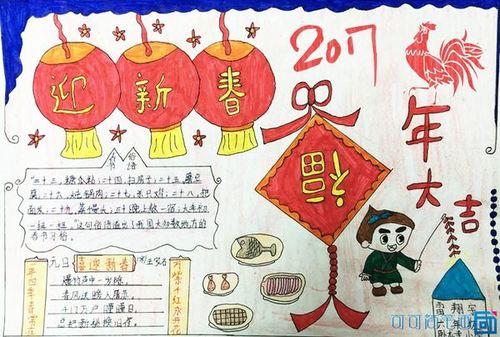 迎新春
2017
年大吉
福
春节俗语
"二十三,糖瓜粘;二十四,扫房子;二十五,磨豆
腐;二十六,炖锅肉;二十七,宰只鸡;二十八,把
面发;二十九,蒸馒头;三十晚上熬一宿;大年初
一扭一扭。"这句俗语道出了我国大多数地方的
春节习俗。
元日
喜迎新春
爆竹声中一岁除,
春风送暖入屠苏。
千门万户曈曈日,
总把新桃换旧符。
年四季春常在
万紫千红永开花